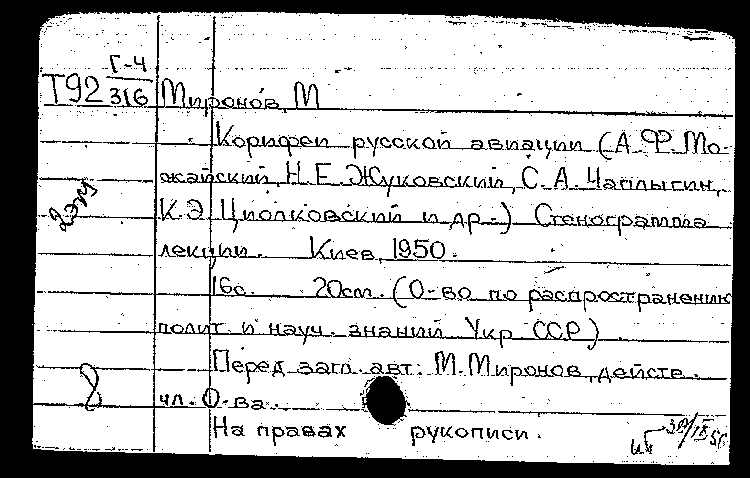 Г-4
Т92 316 Миронов, М
Корифеи русской авиации (А.Ф. Мо-
жайский, Н.Е. Жуковский, С.А. Чаплыгин,
К.Э. Циолковский и др.) Стенограмма
2 экз
лекции. Киев, 1950.
16с. 20см. (О-во по распространению
полит. и науч. знаний Укр ССР)
Перед загл. авт: М. Миронов, действ.
чл. О-ва.
8
На правах рукописи.